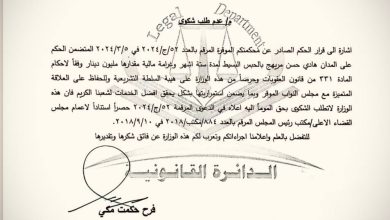 Legal Department
م/ عدم طلب شكوى
اشارة الى قرار الحكم الصادر عن محكمتكم الموقرة المرقم بالعدد ٥٢/ج/٢٠٢٤ في ٢٠٢٤/٣/٥ المتضمن الحكم
على المدان هادي حسن مريهج بالحبس البسيط لمدة ستة اشهر وغرامة مالية مقدارها مليون دينار وفقاً لاحكام
المادة ٣٣١ من قانون العقوبات وحرصاً من هذه الوزارة على هيبة السلطة التشريعية وللحفاظ على العلاقة
المتميزة مع مجلس النواب الموقر وبما يضمن استمراريتها بشكل يحقق افضل الخدمات لشعبنا الكريم فان هذه
الوزارة لاتطلب الشكوى بحق المومأ اليه اعلاه في الدعوى المرقمة ٥٢/ج/٢٠٢٤ حصراً استناداً لاعمام مجلس
القضاء الاعلى/مكتب رئيس المجلس الموقر بالعدد ٨٨٤/مكتب/٢٠١٨ في ٢٠١٨/٩/١٠.
للتفضل بالعلم واعلامنا اجراءاتكم ونعرب لكم هذه الوزارة عن فائق شكرها وتقديرها
الدائرة القانونية
فرح حكمت مكي